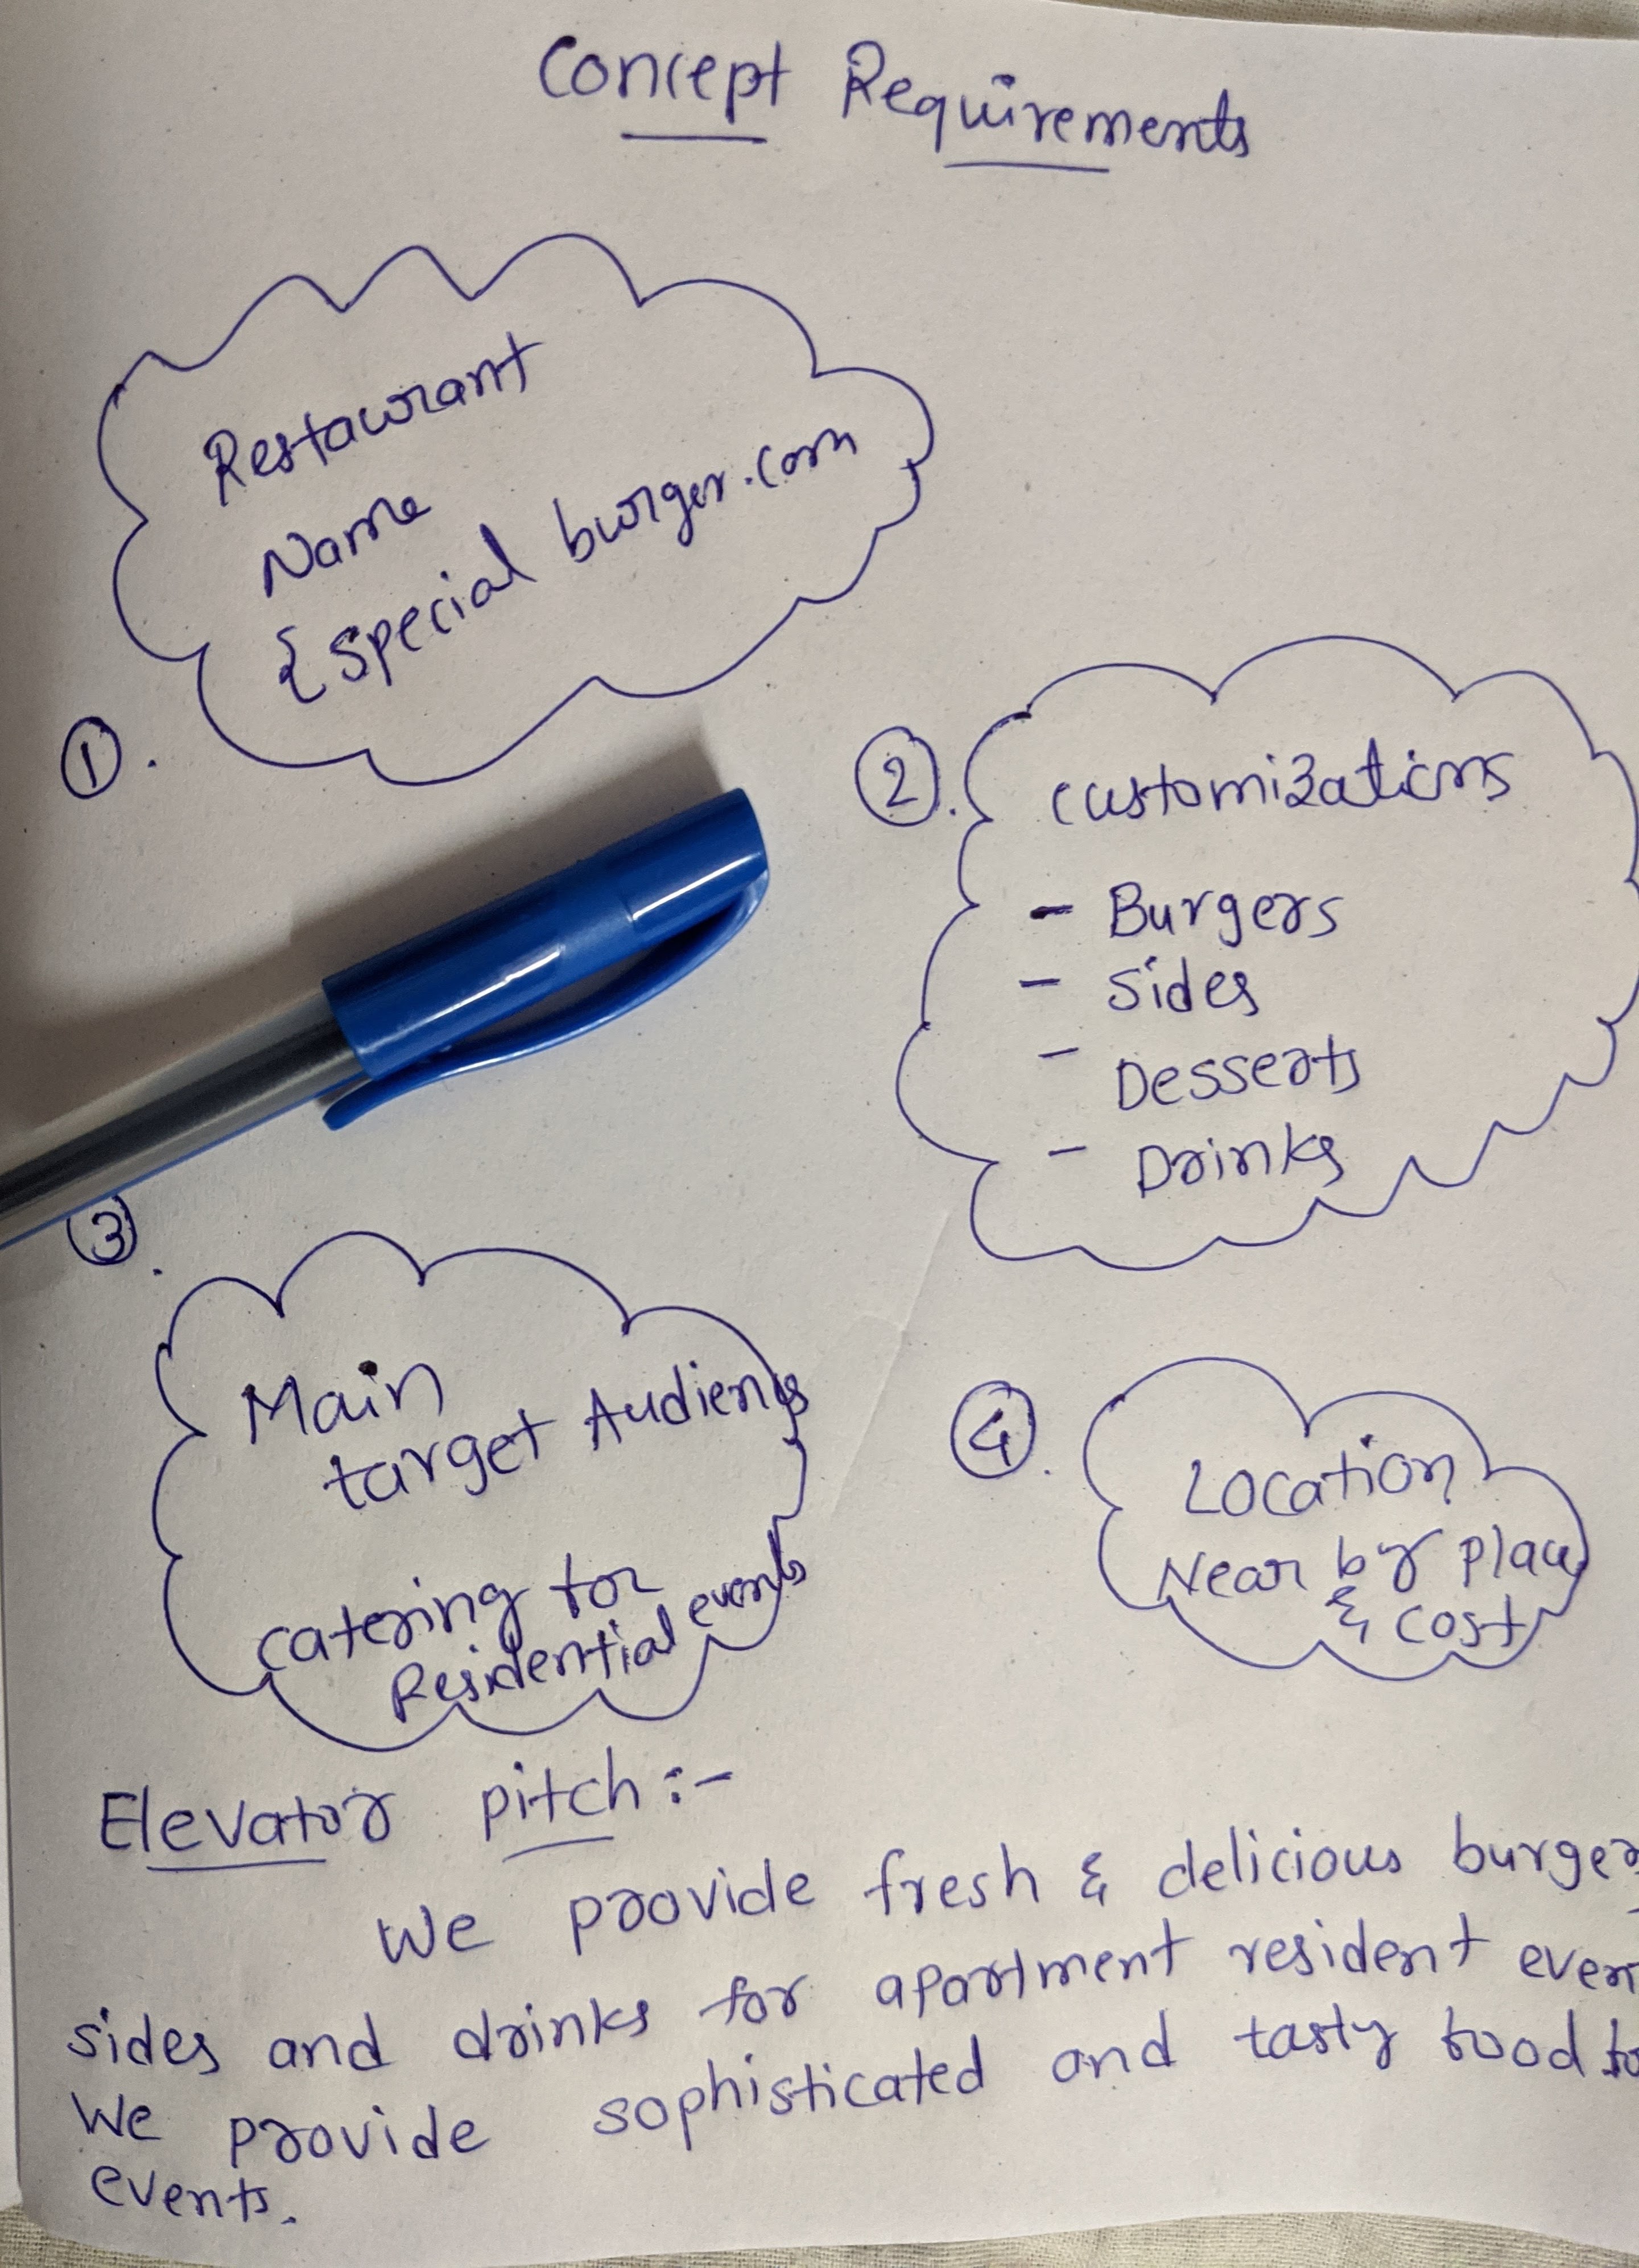 Concept Requirements
Restaurant
Name
{ special burger.com
1.
2.
customizations
- Burgers
- Sides
- Desserts
- Drinks
3.
Main
target Audiens
catering for
Residential events
4.
Location
Near by place
& cost
Elevator pitch :-
We provide fresh & delicious burger
sides and drinks for apartment resident even
We provide sophisticated and tasty food to
events.